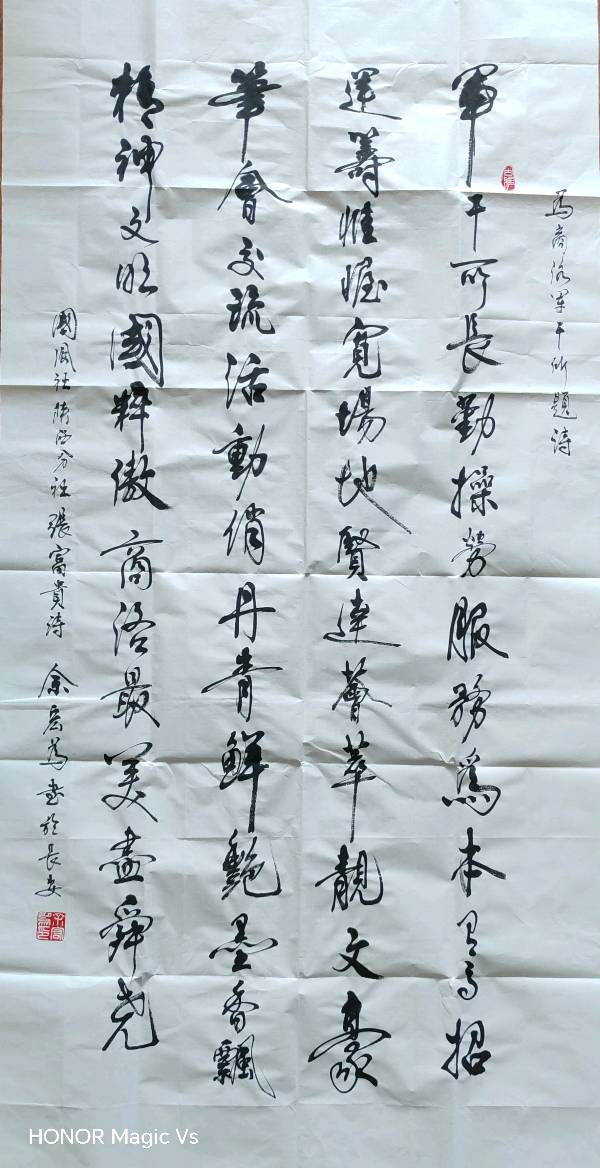 為商洛軍干所題詩
軍干所長勤操勞服務爲本高招
運籌帷幄寬場地賢達薈萃靚文豪
筆會交流活動俏丹青鮮艷墨香飄
精神文明國粹傲商洛最美盡舜堯
國風社陝西分社張富貴詩 余宏為書於長安
HONOR Magic Vs